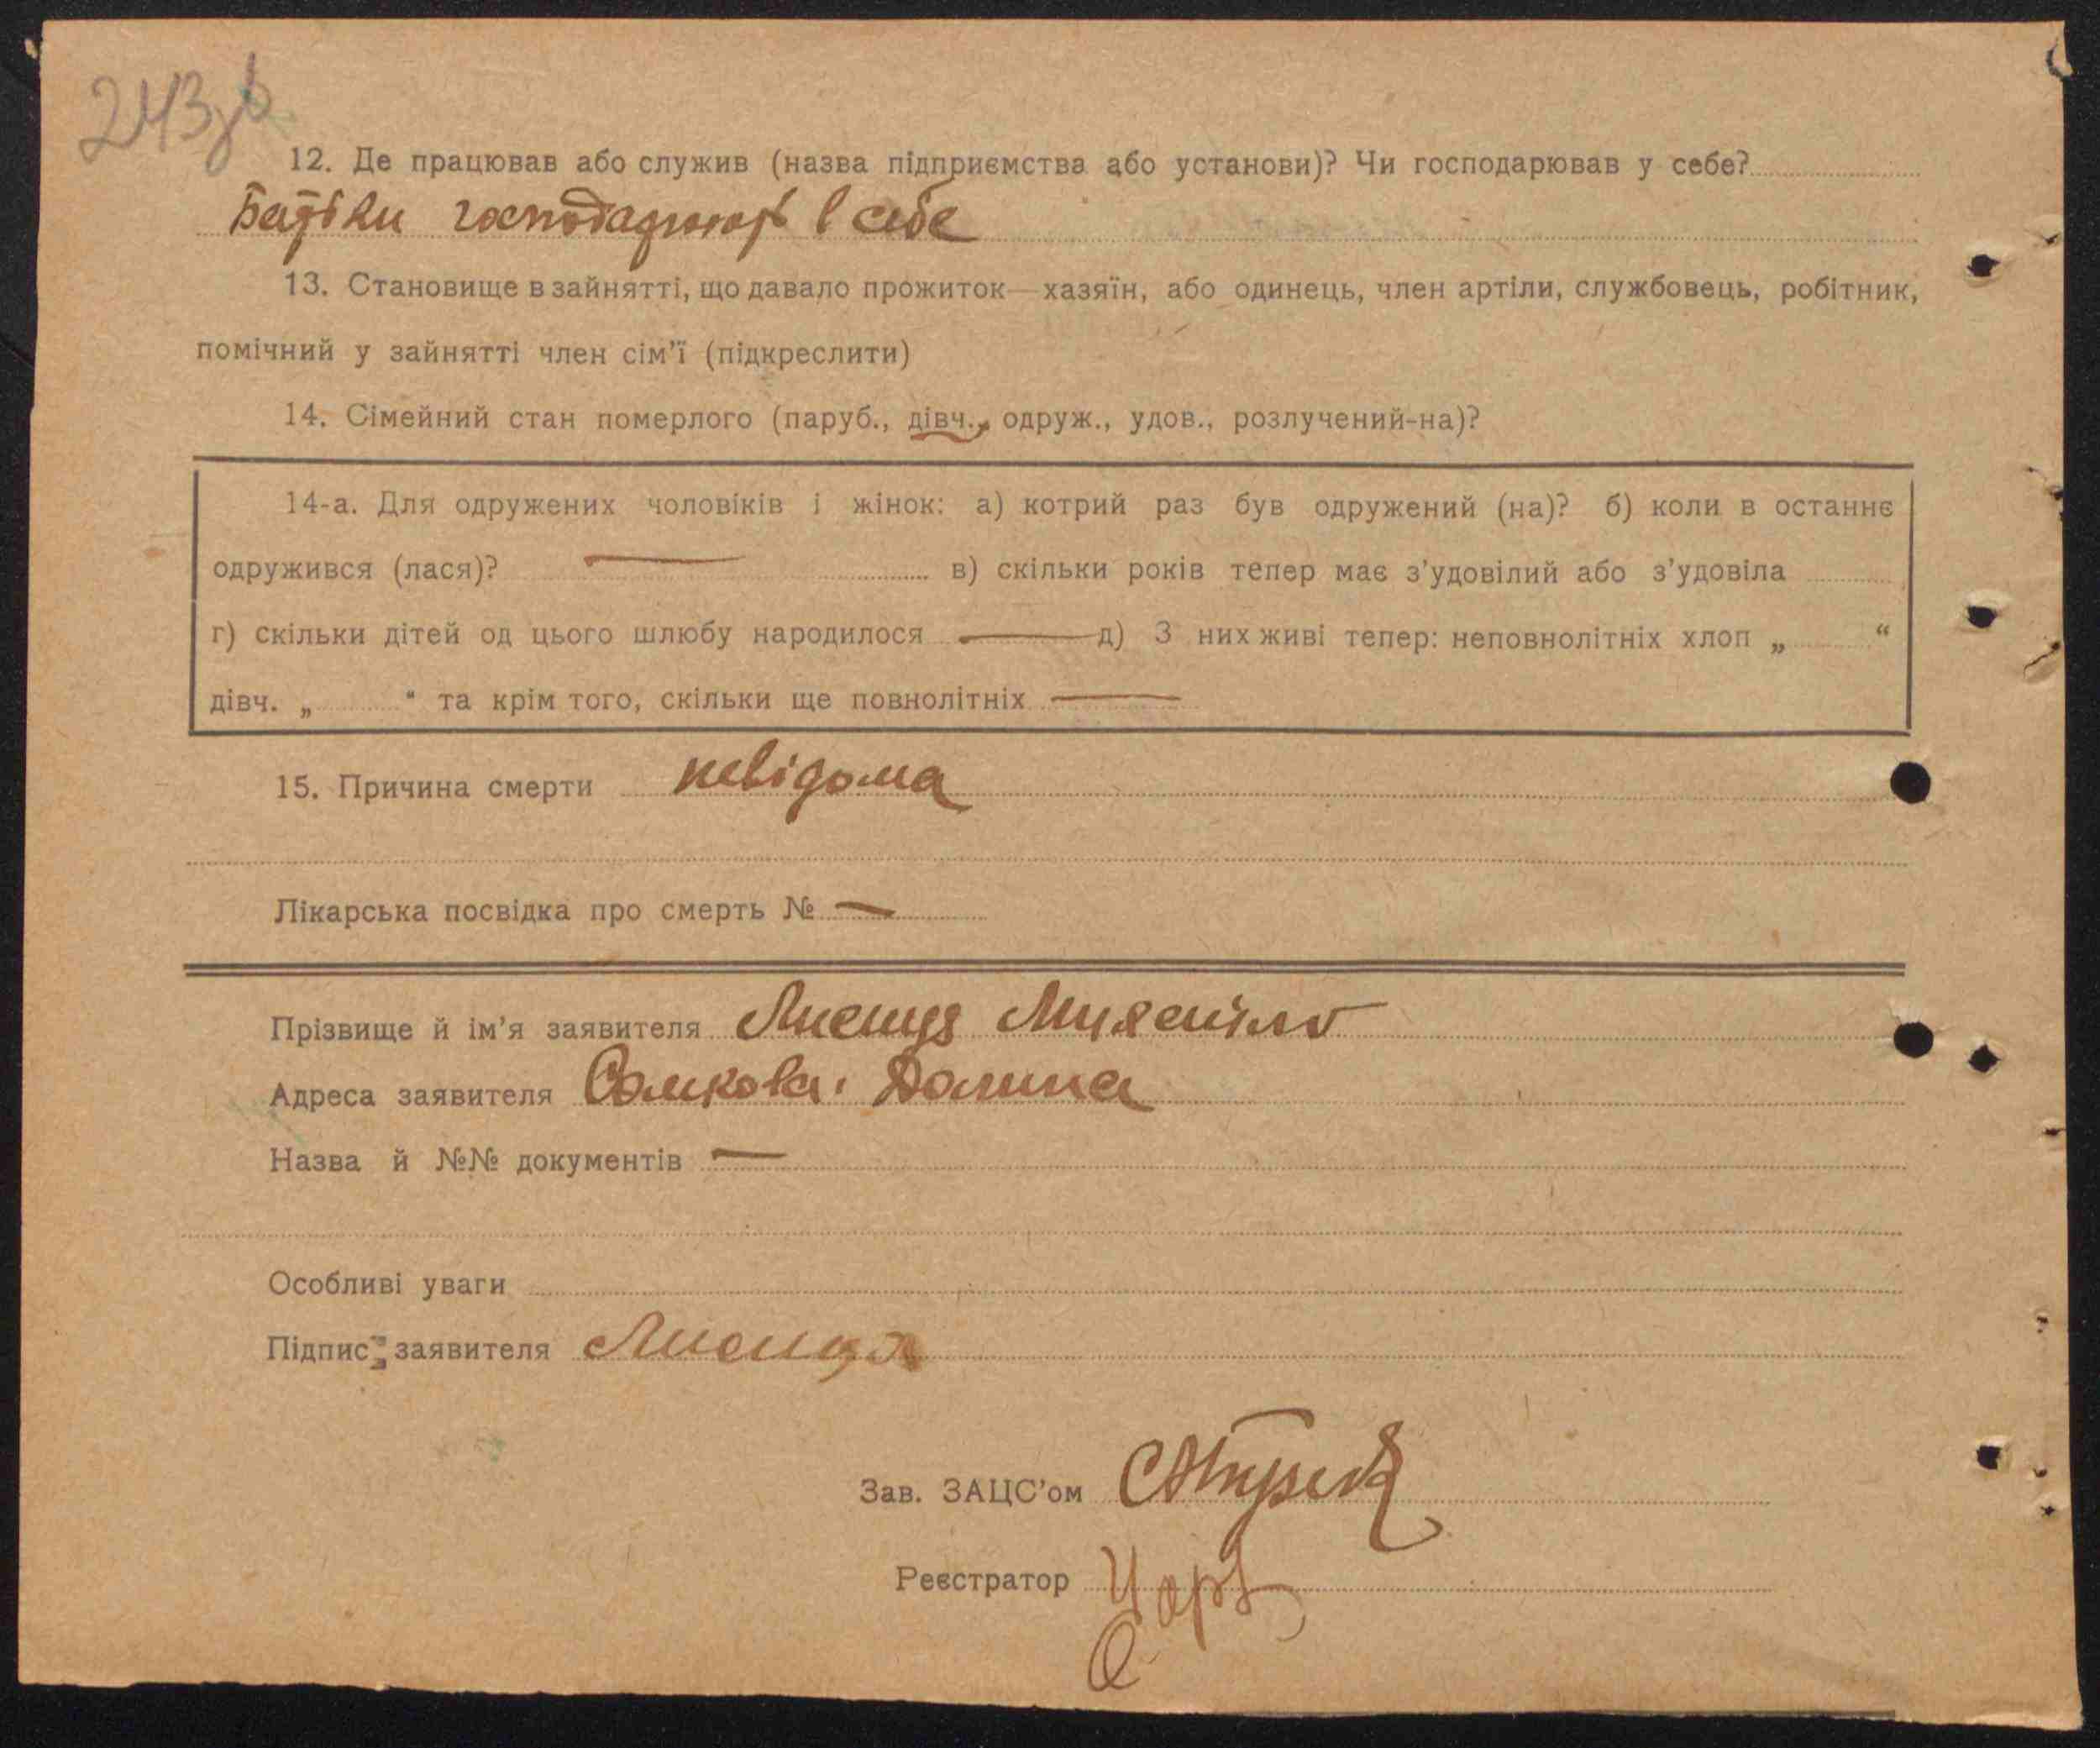 243зв
12. Де працював або служив (назва підприємства або установи)? Чи господарював у себе?
Батьки господарюють в себе
13. Становище в зайнятті, що давало прожиток—хазяїн, або одинець, член артіли, службовець, робітник,
помічний у зайнятті член сім'ї (підкреслити)
14. Сімейний стан померлого (паруб., дівч., одруж., удов., розлучений-на)?
14-а. Для одружених чоловіків і жінок: а) котрий раз був одружений (на)? б) коли в останнє
одружився (лася)? — в) скільки років тепер має з'удовілий або з'удовіла
г) скільки дітей од цього шлюбу народилося — д) З них живі тепер: неповнолітніх хлоп „ “
дівч. „ “ та крім того, скільки ще повнолітніх —
15. Причина смерти невідома
Лікарська посвідка про смерть № —
Прізвище й ім'я заявителя Лисиця
Адреса заявителя Сомкова Долина
Назва й №№ документів —
Особливі уваги
Підпис заявителя Лисиця
Зав. ЗАЦС'ом
Реєстратор